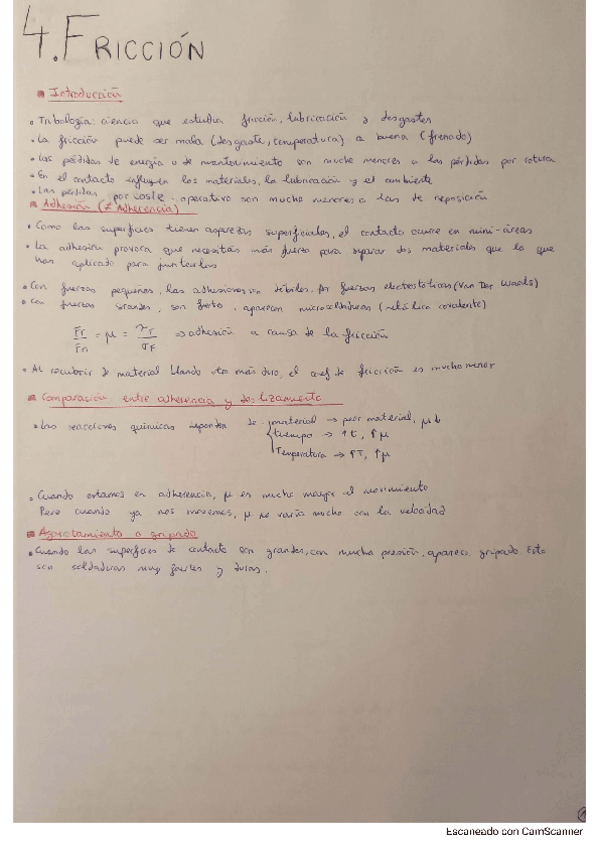 4. FRICCIÓN
Introducción
• Tribología: ciencia que estudia fricción, lubricación y desgastes
• La fricción puede ser mala (desgaste, temperatura) o buena (frenado)
• Las pérdidas de energía o de mantenimiento son mucho menores a las pérdidas por rotura
• En el contacto influyen los materiales, la lubricación y el ambiente
• Las pérdidas por coste operativo son mucho menores a las de reposición
Adhesión (≠ Adherencia)
• Como las superficies tienen asperezas superficiales, el contacto ocurre en mini-áreas
• La adhesión provoca que necesitas más fuerza para separar dos materiales que la que
has aplicado para juntarlos
• Con fuerzas pequeñas, las adhesiones son débiles. Por fuerzas electrostáticas (Van Der Waals)
• Con fuerzas grandes, son aparecen microsoldaduras (metálico covalente)
Fr/Fn = μ = τr/σF ⇒ adhesión a causa de la fricción
• Al recubrir de material blando otro más duro, el coef de fricción es mucho menor
Comparación entre adherencia y deslizamiento
• Las reacciones químicas dependen de: material → peor material, μ↓
tiempo → ↑t, ↑μ
Temperatura → ↑T, ↑μ
• Cuando estamos en adherencia, μ es mucho mayor al movimiento
Pero cuando ya nos movemos, μ no varía mucho con la velocidad
Agarrotamiento o gripado
• Cuando las superficies de contacto son grandes, con mucha presión, aparece gripado. Esto
son soldaduras muy fuertes y duras.
Escaneado con CamScanner